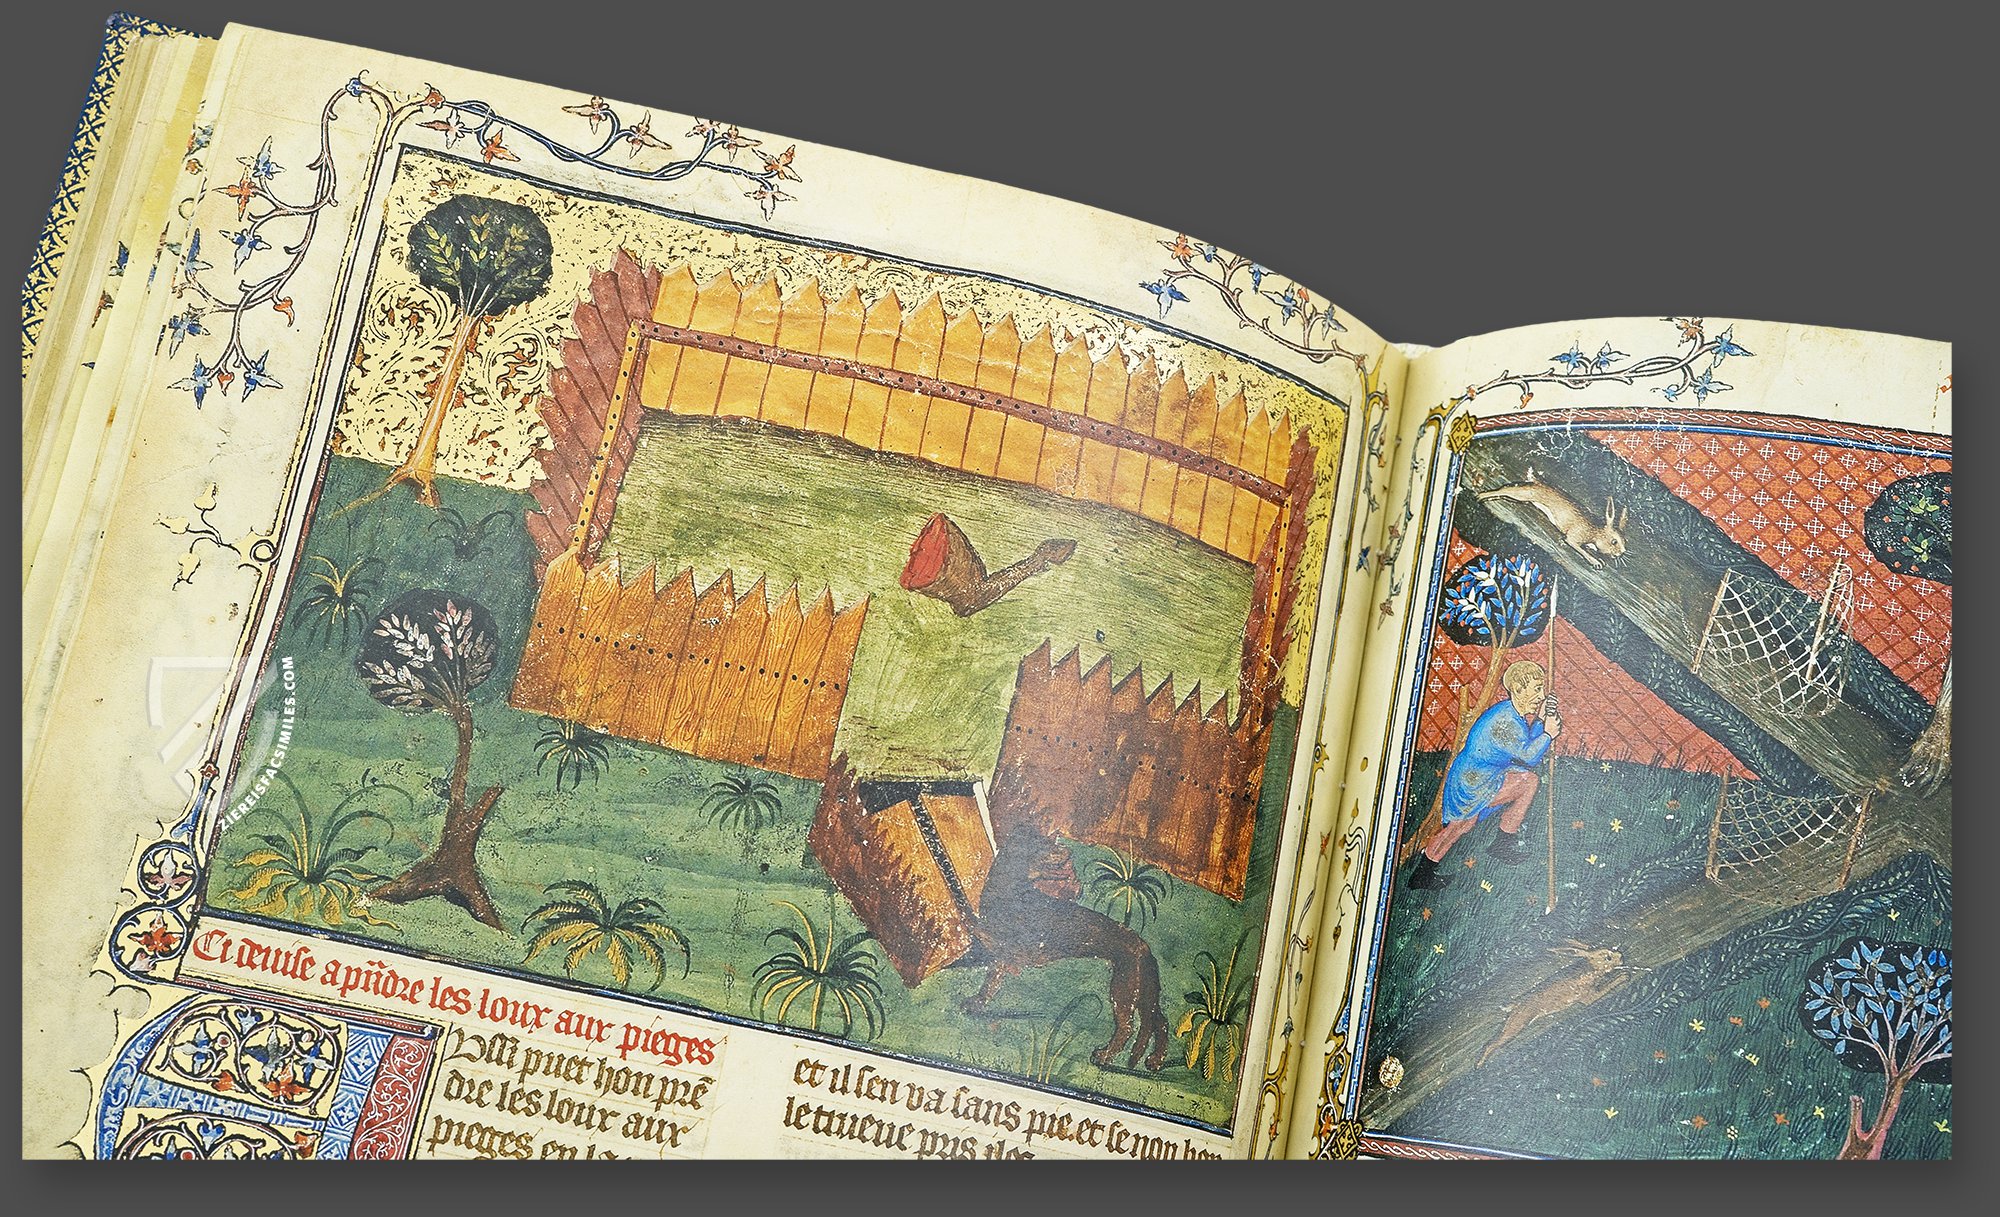 Ci deuise a pñdre les loux aux pieges
Ussi puet hon prē
dre les loux aux
pieges en la
et il sen va sans pie. et se non hon
le trueue pris
ZIEREISFACSIMILES.COM